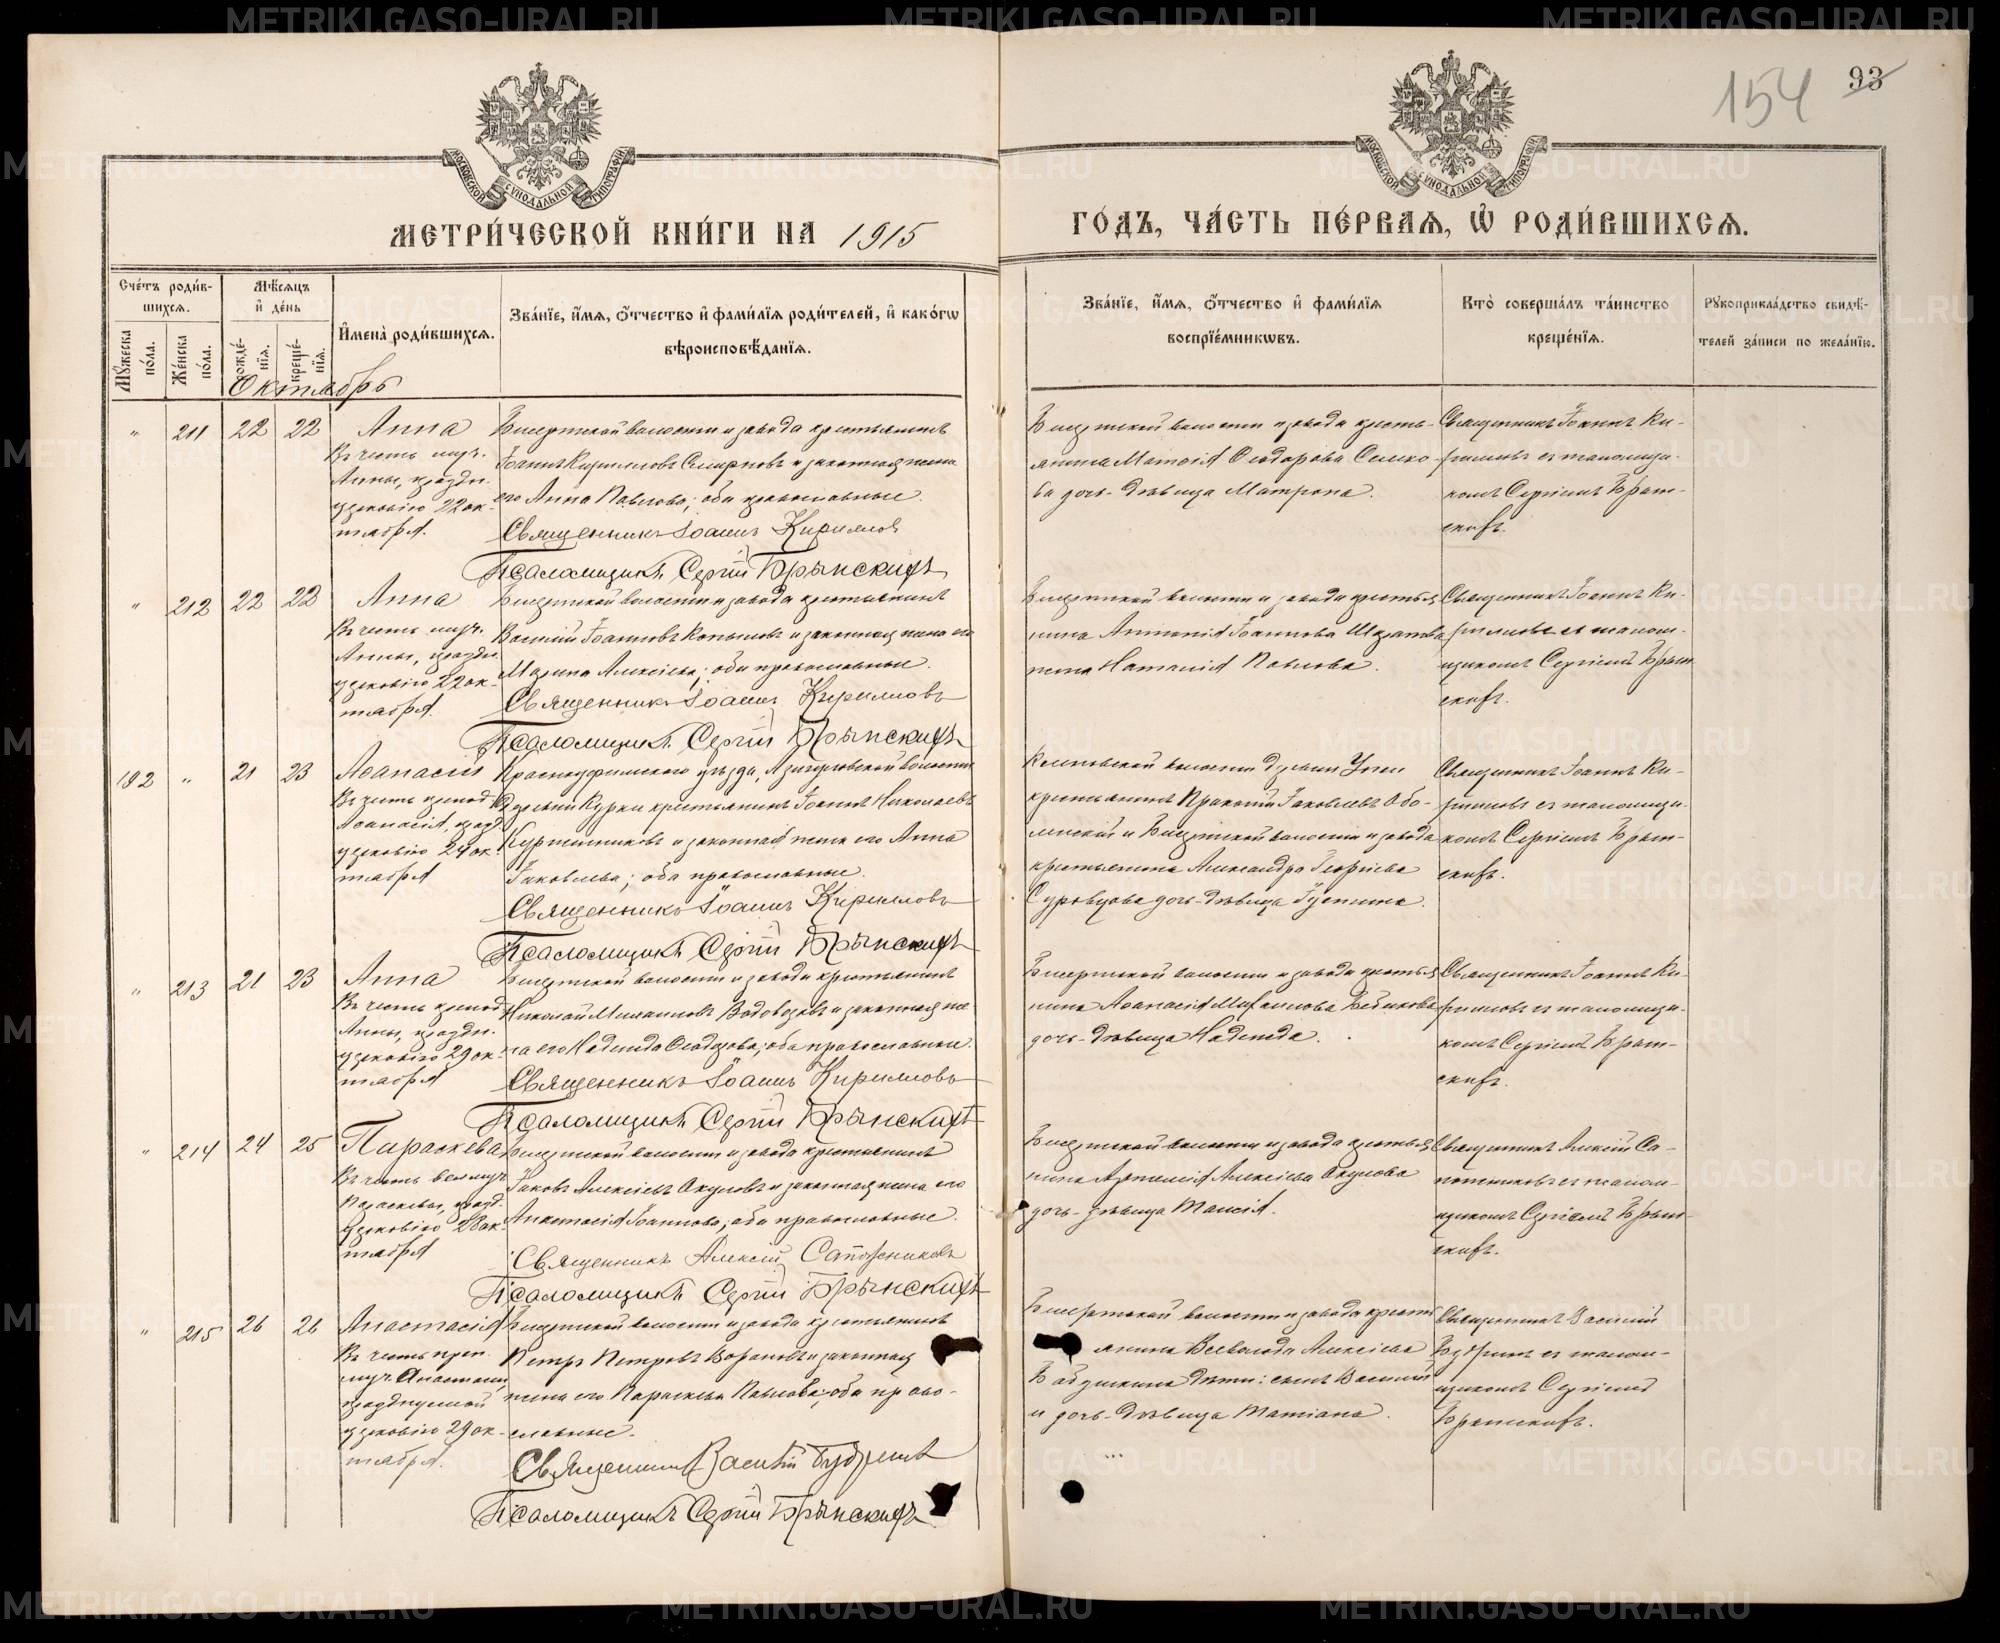 154 93
МОСКОВСКОЙ СУНОДАЛЬНОЙ ТИПОГРАФІИ
МОСКОВСКОЙ СУНОДАЛЬНОЙ ТИПОГРАФІИ
МЕТРИ́ЧЕСКОЙ КНИ́ГИ НА 1915
ГО́ДЪ, ЧА́СТЬ ПЕ́РВАѦ, Ѡ҆ РОДИ́ВШИХСѦ.
Сче́тъ роди́в-
шихсѧ.
Мꙋ́жеска по́ла.
Же́нска по́ла.
Мѣ́сѧцъ
и҆ де́нь
рожде́-
нїѧ.
креще́-
нїѧ.
И҆мена̀ роди́вшихсѧ.
Зва́нїе, и҆́мѧ, ѻ҆́тчество и҆ фами́лїѧ роди́телей, и҆ како́гѡ
вѣроисповѣ́данїѧ.
Зва́нїе, и҆́мѧ, ѻ҆́тчество и҆ фами́лїѧ
воспрїе́мникѡвъ.
Кто̀ соверша́лъ та́инство
креще́нїѧ.
Рꙋкоприкла́дство свидѣ́-
телей за́писи по жела́нїю.
Октябрь
" 211 22 22 Анна
Въ честь муч.
Анны, праздн.
церковію 22 ок-
тября.
Бисертской волости и завода крестьянинъ
Іоаннъ Кирилловъ Смирновъ и законная жена
его Анна Павлова; оба православные.
Священникъ Іоаннъ Кирилловъ
Псаломщикъ Сергій Брынскихъ
Бисертской волости и завода кресть-
янина Матѳія Ѳеодорова
дочь-дѣвица Матрона.
Священникъ Іоаннъ Ки-
рилловъ съ псаломщи-
комъ Сергіемъ Брын-
скихъ.
" 212 22 22 Анна
Въ честь муч.
Анны, праздн.
церковію 22 ок-
тября.
Бисертской волости и завода крестьянинъ
Василій Іоанновъ Копыловъ и законная жена его
Марина Алексіева; оба православные.
Священникъ Іоаннъ Кирилловъ
Псаломщикъ Сергій Брынскихъ
Бисертской волости и завода крестья-
нина Антонія Іоаннова
жена Наталія Павлова.
Священникъ Іоаннъ Ки-
рилловъ съ псалом-
щикомъ Сергіемъ Брын-
скихъ.
192 " 21 23 Аѳанасій
Въ честь препод.
Аѳанасія, празд.
церковію 24 ок-
тября
Красноуфимскаго уѣзда, Азигуловской волости
деревни Курки крестьянинъ Іоаннъ Николаевъ
и законная жена его Анна
Іаковлева; оба православные.
Священникъ Іоаннъ Кирилловъ
Псаломщикъ Сергій Брынскихъ
волости деревни
крестьянинъ Прокопій Іаковлевъ Обо-
ленскій и Бисертской волости и завода
крестьянина Александра Георгіева
Суровцова дочь-дѣвица Іустина.
Священникъ Іоаннъ Ки-
рилловъ съ псаломщи-
комъ Сергіемъ Брын-
скихъ.
" 213 21 23 Анна
Въ честь препод.
Анны, праздн.
церковію 29 ок-
тября
Бисертской волости и завода крестьянинъ
Николай Михаиловъ Водовозовъ и законная же-
на его Надежда Ѳеодорова; оба православные.
Священникъ Іоаннъ Кирилловъ
Псаломщикъ Сергій Брынскихъ
Бисертской волости и завода крестья-
нина Аѳанасія Михаилова
дочь-дѣвица Надежда.
Священникъ Іоаннъ Ки-
рилловъ съ псаломщи-
комъ Сергіемъ Брын-
скихъ.
" 214 24 25 Параскева
Въ честь великомуч.
Параскевы, празд.
церковію 28 ок-
тября
Бисертской волости и завода крестьянинъ
Іаковъ Алексіевъ Окуловъ и законная жена его
Анастасія Іоаннова; оба православные.
Священникъ Алексій Сапожниковъ
Псаломщикъ Сергій Брынскихъ
Бисертской волости и завода крестья-
нина Артемія Алексіева Окулова
дочь-дѣвица Таисія.
Священникъ Алексій Са-
пожниковъ съ псалом-
щикомъ Сергіемъ Брын-
скихъ.
" 215 26 26 Анастасія
Въ честь преп.
муч. Анастасіи,
празднуемой
церковію 29 ок-
тября.
Бисертской волости и завода крестьянинъ
Петръ Петровъ и законная
жена его Параскева Павлова; оба право-
славные.
Священникъ Василій Будринъ
Псаломщикъ Сергій Брынскихъ
Бисертской волости и завода кресть-
янина Всеволода Алексіева
Бабушкина дѣти: сынъ Василій
и дочь-дѣвица Татіана.
Священникъ Василій
Будринъ съ псалом-
щикомъ Сергіемъ
Брынскихъ.